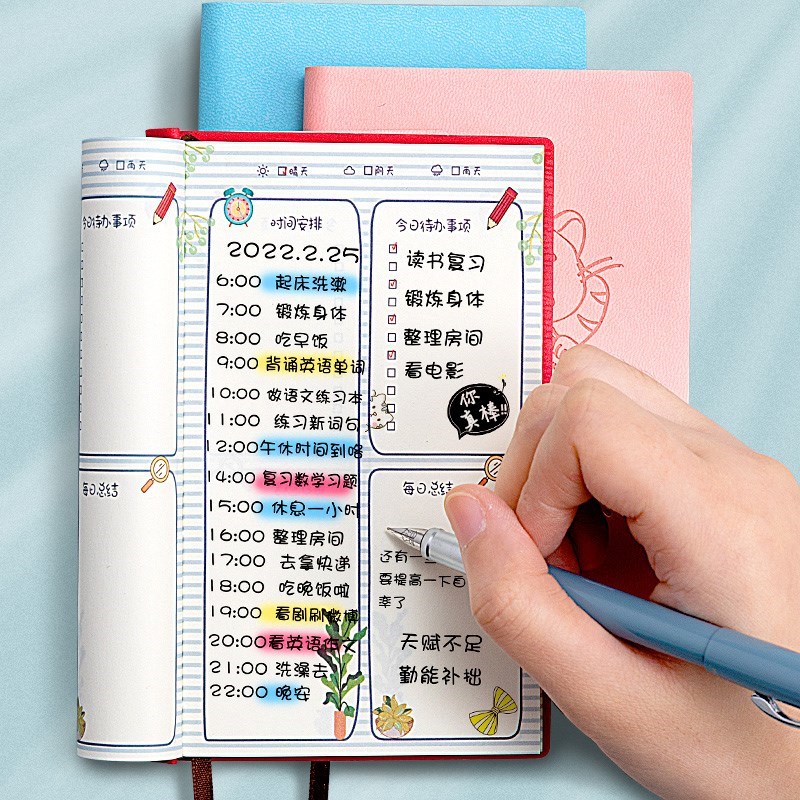 雨天
晴天
阴天
雨天
今日待办事项
每日总结
时间安排
2022.2.25
6:00 起床洗漱
7:00 锻炼身体
8:00 吃早饭
9:00 背诵英语单词
10:00 做语文练习本
11:00 练习新词句
12:00 午休时间到咯
14:00 复习数学习题
15:00 休息一小时
16:00 整理房间
17:00 去拿快递
18:00 吃晚饭啦
19:00 看剧刷微博
20:00 看英语作文
21:00 洗澡去
22:00 晚安
今日待办事项
读书复习
锻炼身体
整理房间
看电影
你
真棒!!
每日总结
还有一些
要提高一下自
率了
天赋不足
勤能补拙